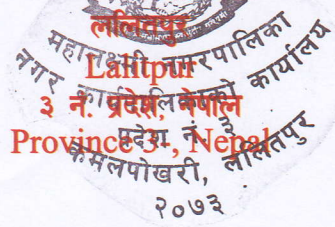 ललितपुर
Lalitpur
३ नं. प्रदेश, नेपाल
Province 3-, Nepal
महालक्ष्मी नगरपालिका
नगर कार्यपालिकाको कार्यालय
प्रदेश नं. ३
कमलपोखरी, ललितपुर
२०७३